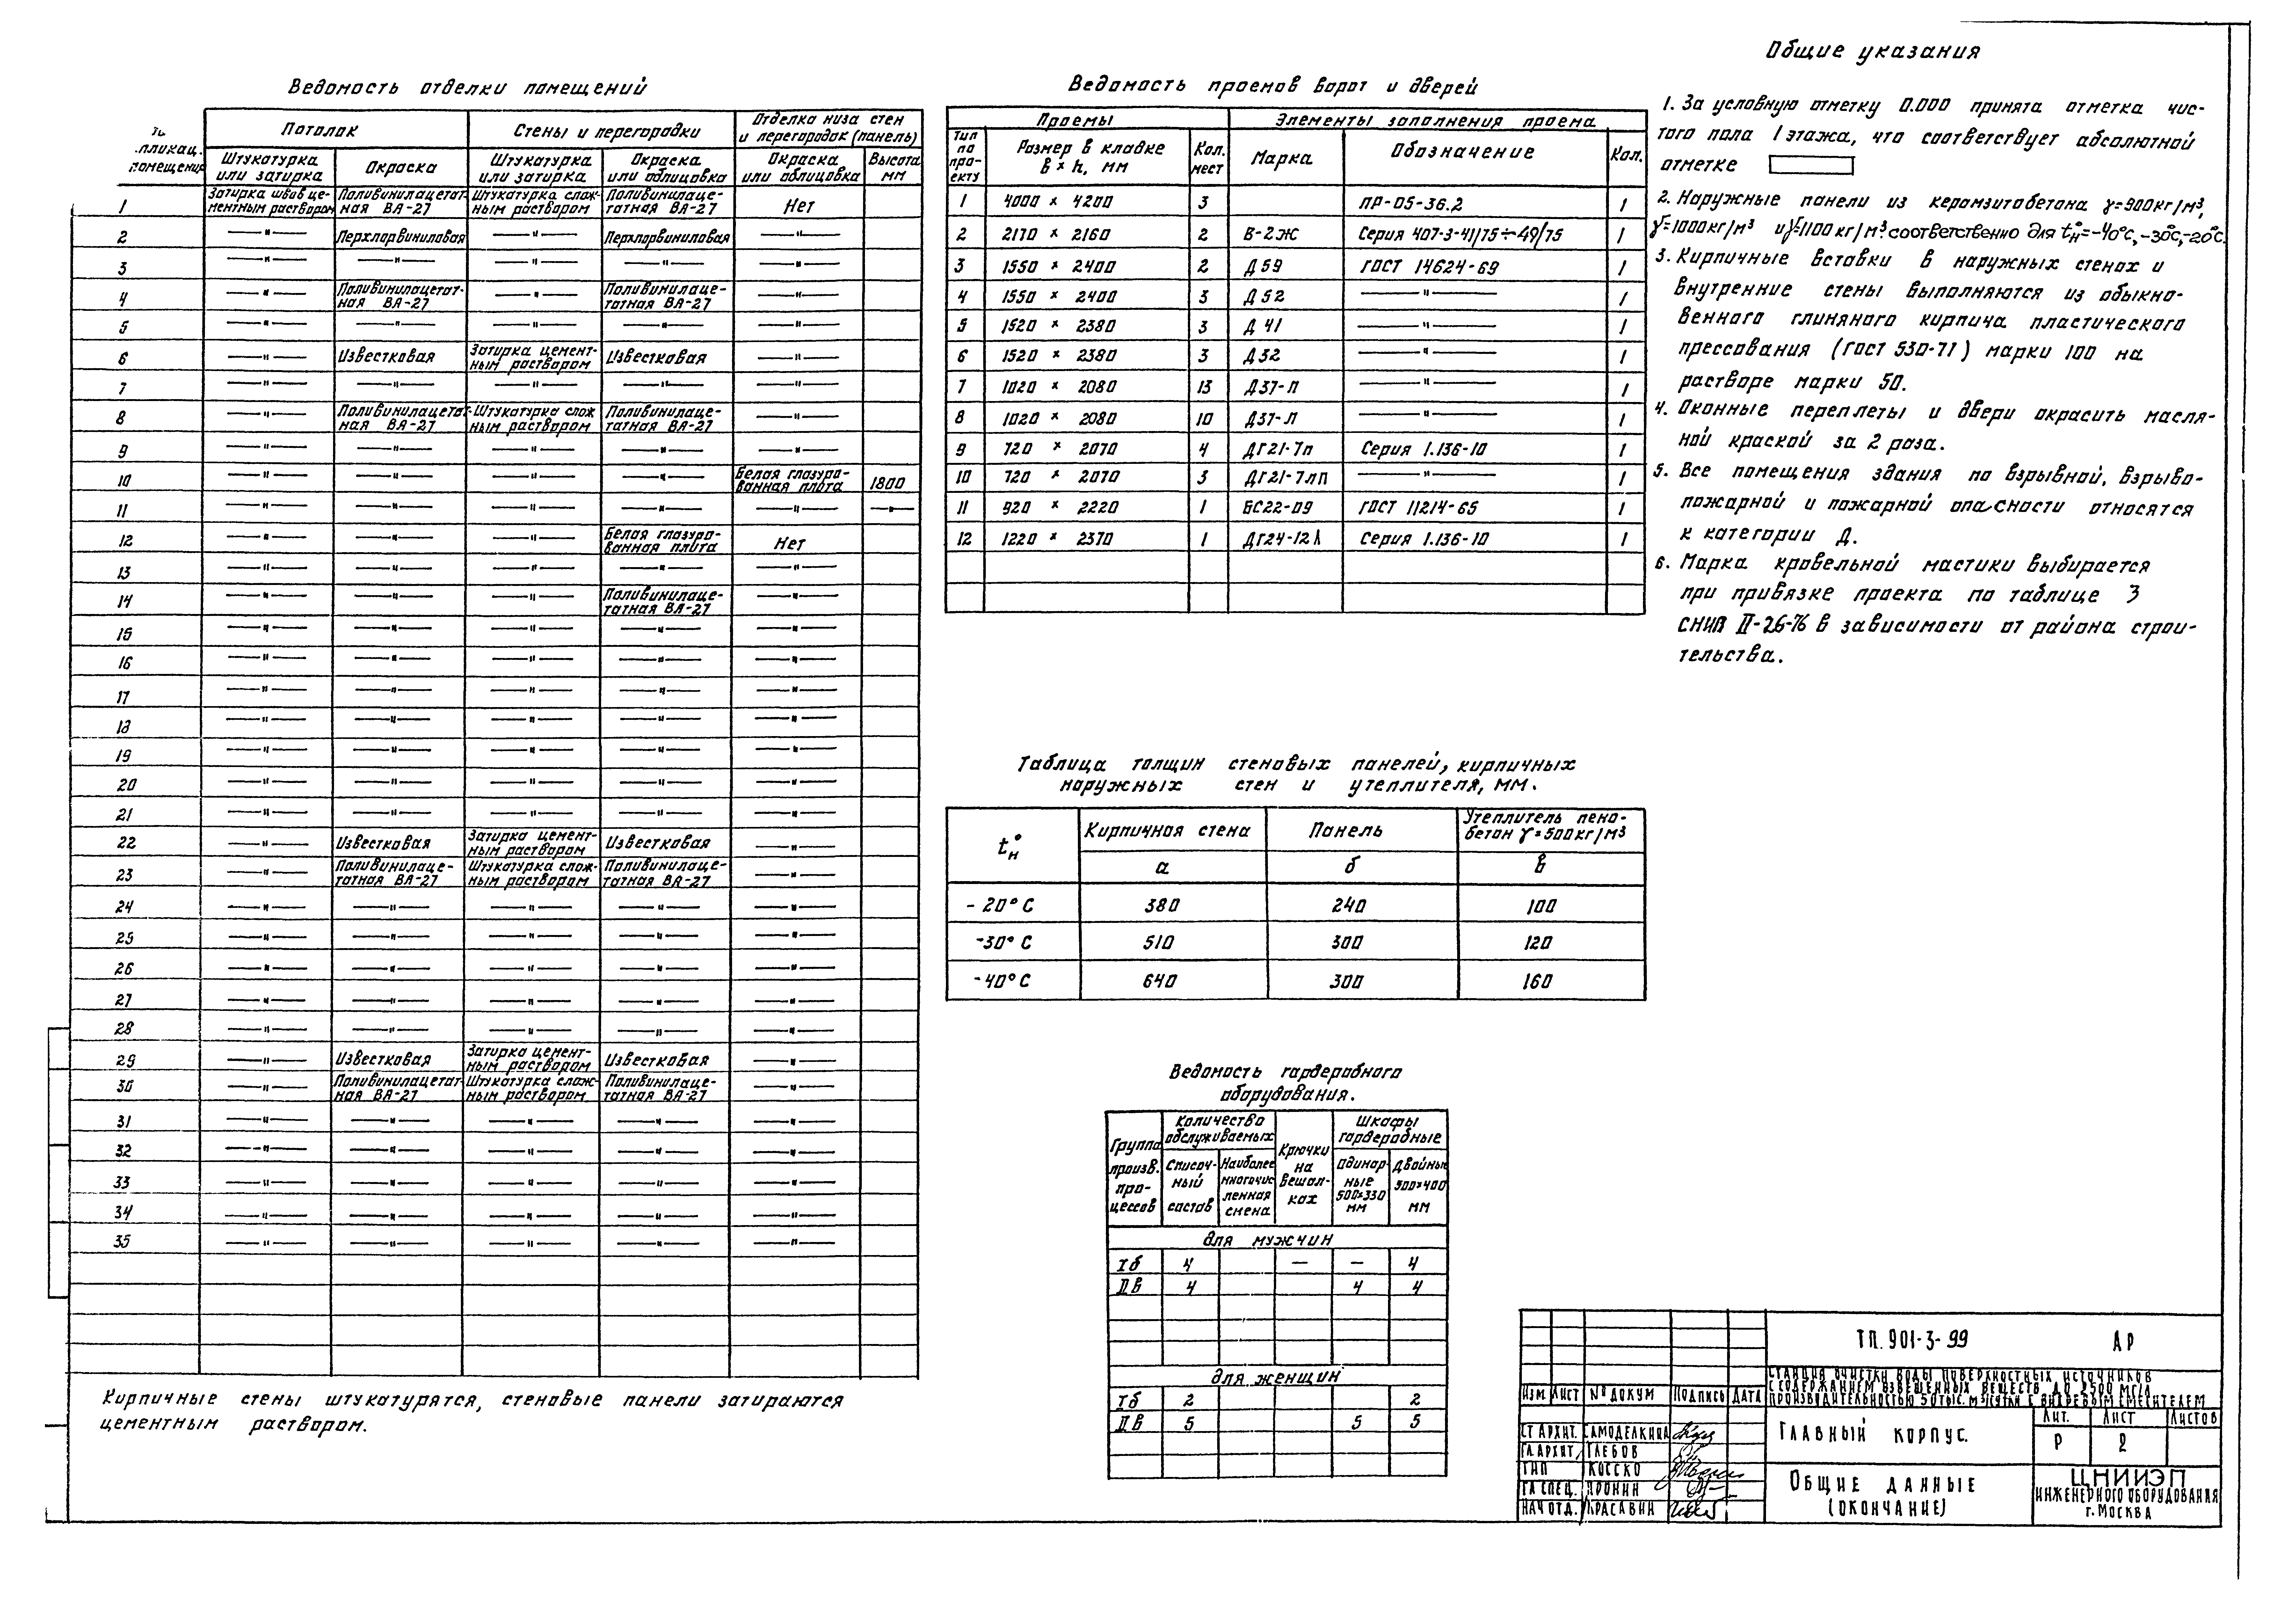 Ведомость отделки помещений
пликац. помещения
Потолок
Стены и перегородки
Отделка низа стен и перегородок (панель)
Штукатурка или затирка
Окраска
Штукатурка или затирка
Окраска или облицовка
Окраска или облицовка
Высота мм
1 Затирка швов цементным раствором Поливинилацетатная ВА-27 Штукатурка сложным раствором Поливинилацетатная ВА-27 Нет
2 —"— Перхлорвиниловая —"— Перхлорвиниловая —"—
3 —"— —"— —"— —"— —"—
4 —"— Поливинилацетатная ВА-27 —"— Поливинилацетатная ВА-27 —"—
5 —"— —"— —"— —"— —"—
6 —"— Известковая Затирка цементным раствором Известковая —"—
7 —"— —"— —"— —"— —"—
8 —"— Поливинилацетатная ВА-27 Штукатурка слож ным раствором Поливинилацетатная ВА-27 —"—
9 —"— —"— —"— —"— —"—
10 —"— —"— —"— —"— Белая глазурованная плита 1800
11 —"— —"— —"— —"— —"— —"—
12 —"— —"— —"— Белая глазурованная плита Нет
13 —"— —"— —"— —"— —"—
14 —"— —"— —"— Поливинилацетатная ВА-27 —"—
15 —"— —"— —"— —"— —"—
16 —"— —"— —"— —"— —"—
17 —"— —"— —"— —"— —"—
18 —"— —"— —"— —"— —"—
19 —"— —"— —"— —"— —"—
20 —"— —"— —"— —"— —"—
21 —"— —"— —"— —"— —"—
22 —"— Известковая Затирка цементным раствором Известковая —"—
23 —"— Поливинилацетатная ВА-27 Штукатурка сложным раствором Поливинилацетатная ВА-27 —"—
24 —"— —"— —"— —"— —"—
25 —"— —"— —"— —"— —"—
26 —"— —"— —"— —"— —"—
27 —"— —"— —"— —"— —"—
28 —"— —"— —"— —"— —"—
29 —"— Известковая Затирка цементным раствором Известковая —"—
30 —"— Поливинилацетатная ВА-27 Штукатурка сложным раствором Поливинилацетатная ВА-27 —"—
31 —"— —"— —"— —"— —"—
32 —"— —"— —"— —"— —"—
33 —"— —"— —"— —"— —"—
34 —"— —"— —"— —"— —"—
35 —"— —"— —"— —"— —"—
Кирпичные стены штукатурятся, стеновые панели затираются
цементным раствором.
Ведомость проемов ворот и дверей
Проемы
Элементы заполнения проема
Тип по проекту
Размер в кладке в × h, мм
Кол. мест
Марка
Обозначение
Кол.
1 4000 × 4200 3 ПР-05-36.2 1
2 2170 × 2160 2 В-2Ж Серия 407-3-41/75÷49/75 1
3 1550 × 2400 2 Д59 ГОСТ 14624-69 1
4 1550 × 2400 3 Д52 —"— 1
5 1520 × 2380 3 Д41 —"— 1
6 1520 × 2380 3 Д32 —"— 1
7 1020 × 2080 13 Д37-П —"— 1
8 1020 × 2080 10 Д37-Л —"— 1
9 720 × 2070 4 ДГ21-7п Серия 1.136-10 1
10 720 × 2070 3 ДГ21-7лп —"— 1
11 920 × 2220 1 БС22-09 ГОСТ 11214-65 1
12 1220 × 2370 1 ДГ24-12л Серия 1.136-10 1
Таблица толщин стеновых панелей, кирпичных
наружных стен и утеплителя, мм.
tн°
Кирпичная стена
Панель
Утеплитель пенобетон γ=500кг/м³
а б в
-20°С 380 240 100
-30°С 510 300 120
-40°С 640 300 160
Ведомость гардеробного
оборудования.
Группа произв. процессов
Количество обслуживаемых
Списочный состав
Наиболее многочисленная смена
Крючки на вешалках
Шкафы гардеробные
Одинарные 500×330 мм
Двойные 500×400 мм
Для мужчин
Iб 4 — — 4
IIв 4 4 4
Для женщин
Iб 2 2
IIв 5 5 5
Общие указания
1. За условную отметку 0.000 принята отметка чис-
того пола 1 этажа, что соответствует абсолютной
отметке
2. Наружные панели из керамзитобетона γ=900кг/м³,
γ=1000кг/м³ и γ=1100кг/м³ соответственно для tн°=-40°С, -30°С, -20°С.
3. Кирпичные вставки в наружных стенах и
внутренние стены выполняются из обыкно-
венного глиняного кирпича пластического
прессования (ГОСТ 530-71) марки 100 на
растворе марки 50.
4. Оконные переплеты и двери окрасить масля-
ной краской за 2 раза.
5. Все помещения здания по взрывной, взрыво-
пожарной и пожарной опасности относятся
к категории Д.
6. Марка кровельной мастики выбирается
при привязке проекта по таблице 3
СНиП II-26-76 в зависимости от района строи-
тельства.
ТП. 901-3-99 АР
Станция очистки воды поверхностных источников
с содержанием взвешенных веществ до 2500 мг/л
производительностью 50 тыс. м³/сутки с вихревым смесителем
Изм Лист № докум Подпись Дата
Ст архит. Самоделкина
Гл. архит. Глебов
ГИП Косско
Гл спец. Пронин
Нач отд. Красавин
Главный корпус.
Лит. Лист Листов
Р 2
Общие данные
(окончание)
ЦНИИЭП
инженерного оборудования
г. Москва